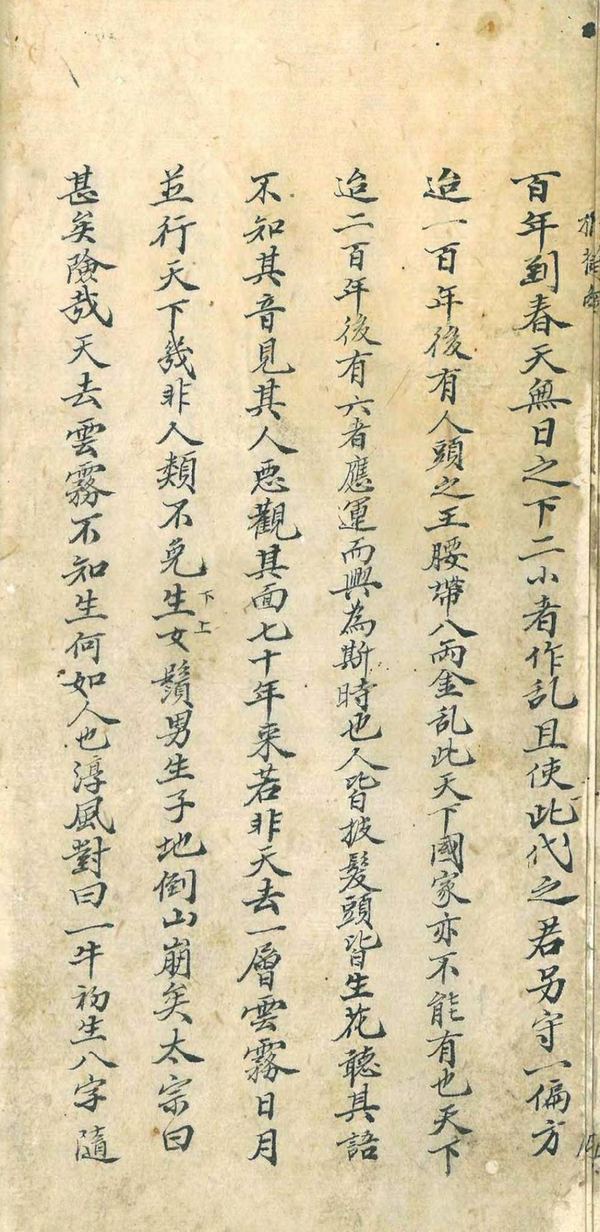 百年到春天無日之下二小者作乱且使此代之君另守一偏方
迨一百年後有人頭之王腰帶八両金乱此天下國家亦不能有也天下
迨二百年後有六者應運而興為斯時也人皆披髮頭皆生花聽其語
不知其音見其人惡觀其面七十年来若非天去一層雲霧日月
並行天下幾非人類不免生女鬚男生子地倒山崩矣太宗曰
下上
甚矣險哉天去雲霧不知生何如人也淳風對曰一牛初生八字隨